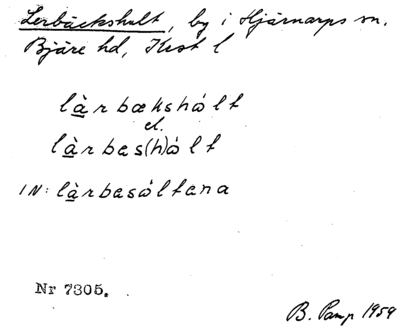 Lerbäckshult, by i Hjärnarps sn,
Bjäre hd, Krist l
làrbækshålt
el.
làrbæs(h)ålt
IN: làrbasåltana
Nr 7305.
B. Pamp 1959